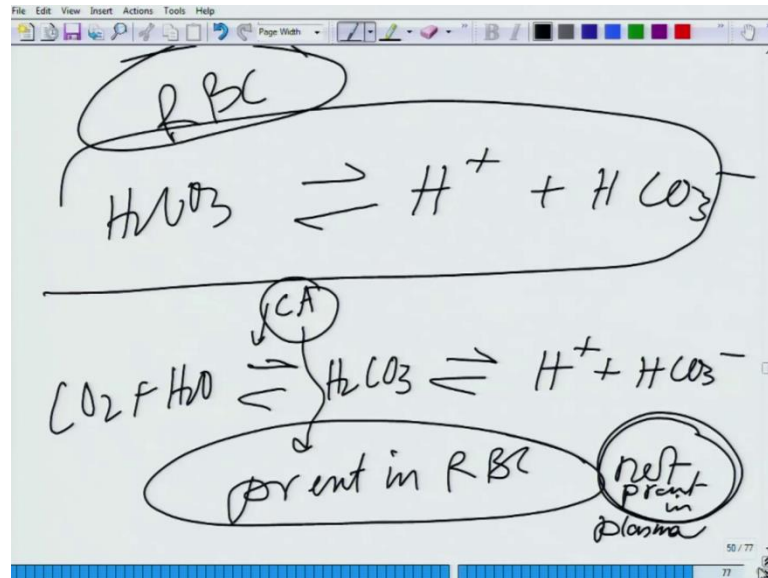 File Edit View Insert Actions Tools Help
Page Width B I
RBC
H2CO3 ⇌ H+ + HCO3-
CA
CO2 + H2O ⇌ H2CO3 ⇌ H+ + HCO3-
prent in RBC
not
prent
in
plasma
50 / 77
77